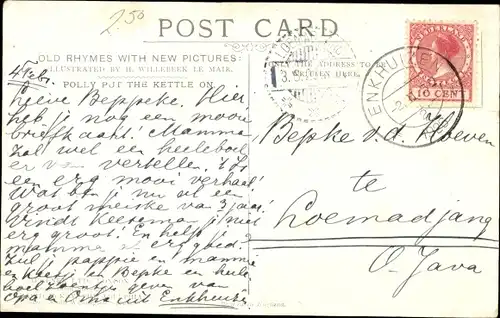 2.50
POST CARD
OLD RHYMES WITH NEW PICTURES:
ILLUSTRATED BY H. WILLEBEEK LE MAIR.
POLLY PUT THE KETTLE ON
ONLY THE ADDRESS TO BE
WRITTEN HERE.
NEDERLAND
10 CENT
ENKHUIZEN
4 Febr.
Lieve Beppeke. Hier
heb je nog een mooi
briefkaart! Mamma
zal wel een heeleboel
er van vertellen. 't Is
een erg mooi verhaal!
Wat ben je nu al een
groot meiske van 3 jaar!
Vindt Keesema je niet
erg groot! En help je
mamma al erg goed.
Zul je pappie en mamma
en Keesje en Bepke een heele
boel zoentjes geven van
Opa en Oma uit Enkhuizen
Bepke v.d. Hoeven
te
Loemadjang
O. Java